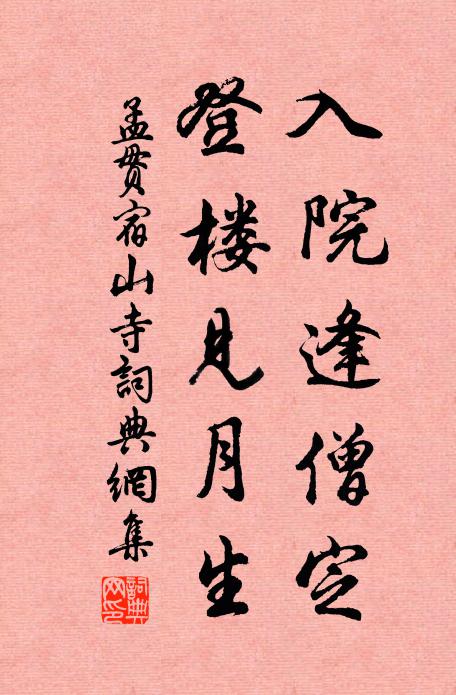 入院逢僧定
登楼見月生
孟贯宿山寺詞典網集
詞典
网印